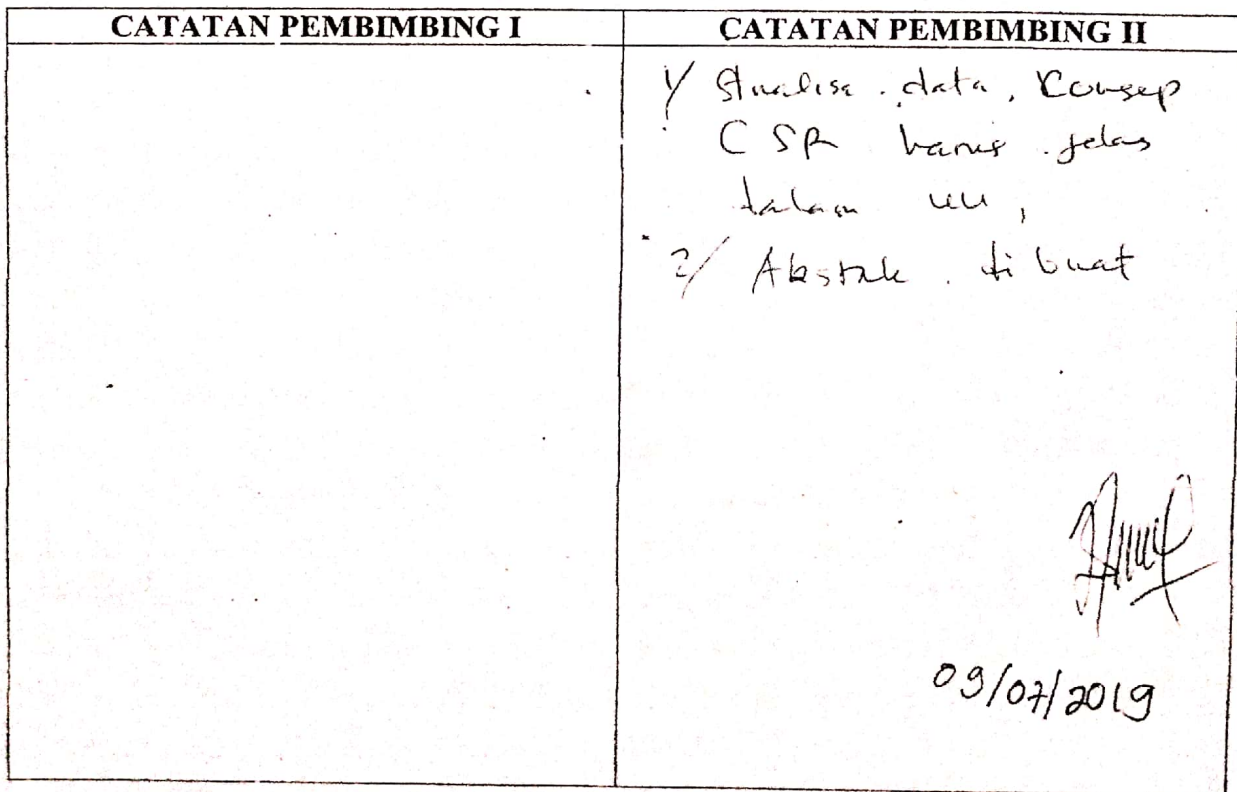 CATATAN PEMBIMBING I
CATATAN PEMBIMBING II
1/ Analisa data, Konsep
CSR harus jelas
dalam UU,
2/ Abstrak di buat
09/07/2019